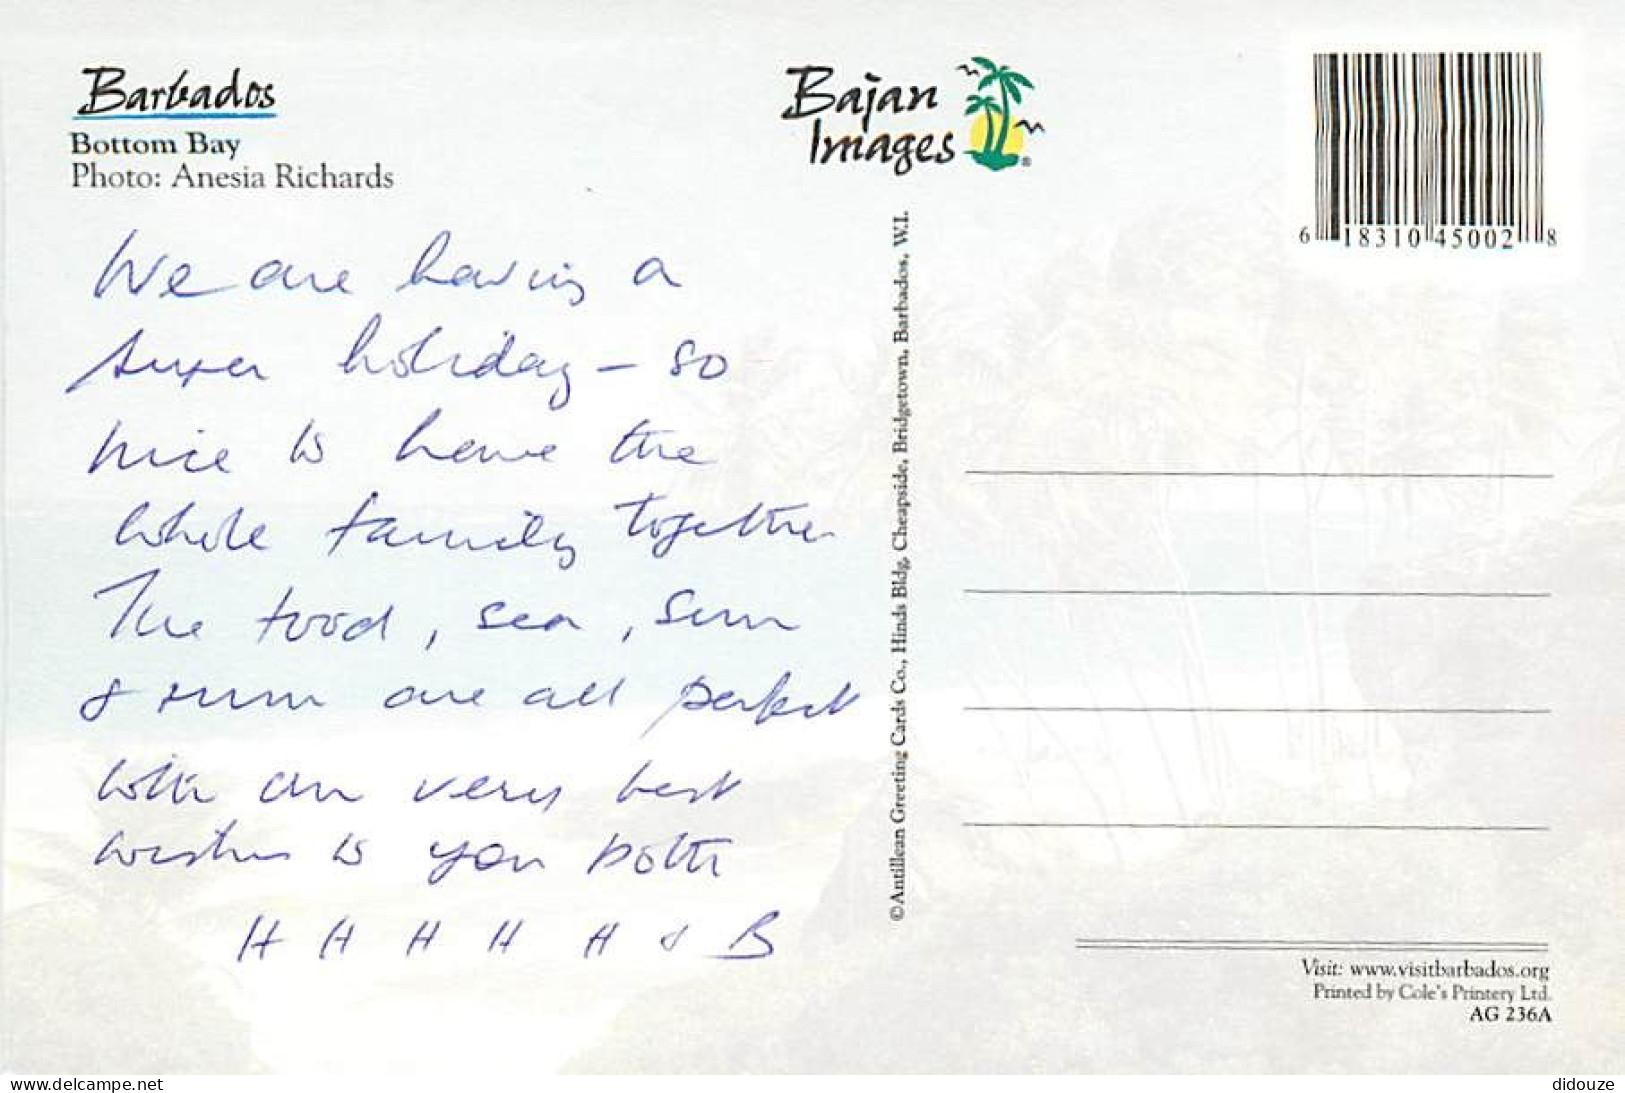 Barbados
Bottom Bay
Photo: Anesia Richards
We are having a
super holiday - so
nice to have the
whole family together
The food, sea, sun
& rum are all perfect
with our very best
wishes to you both
H H H H H & B
Bajan
Images
®
©Antillean Greeting Cards Co., Hinds Bldg, Cheapside, Bridgetown, Barbados, W.I.
6 18310 45002 8
Visit: www.visitbarbados.org
Printed by Cole's Printery Ltd.
AG 236A
www.delcampe.net
didouze